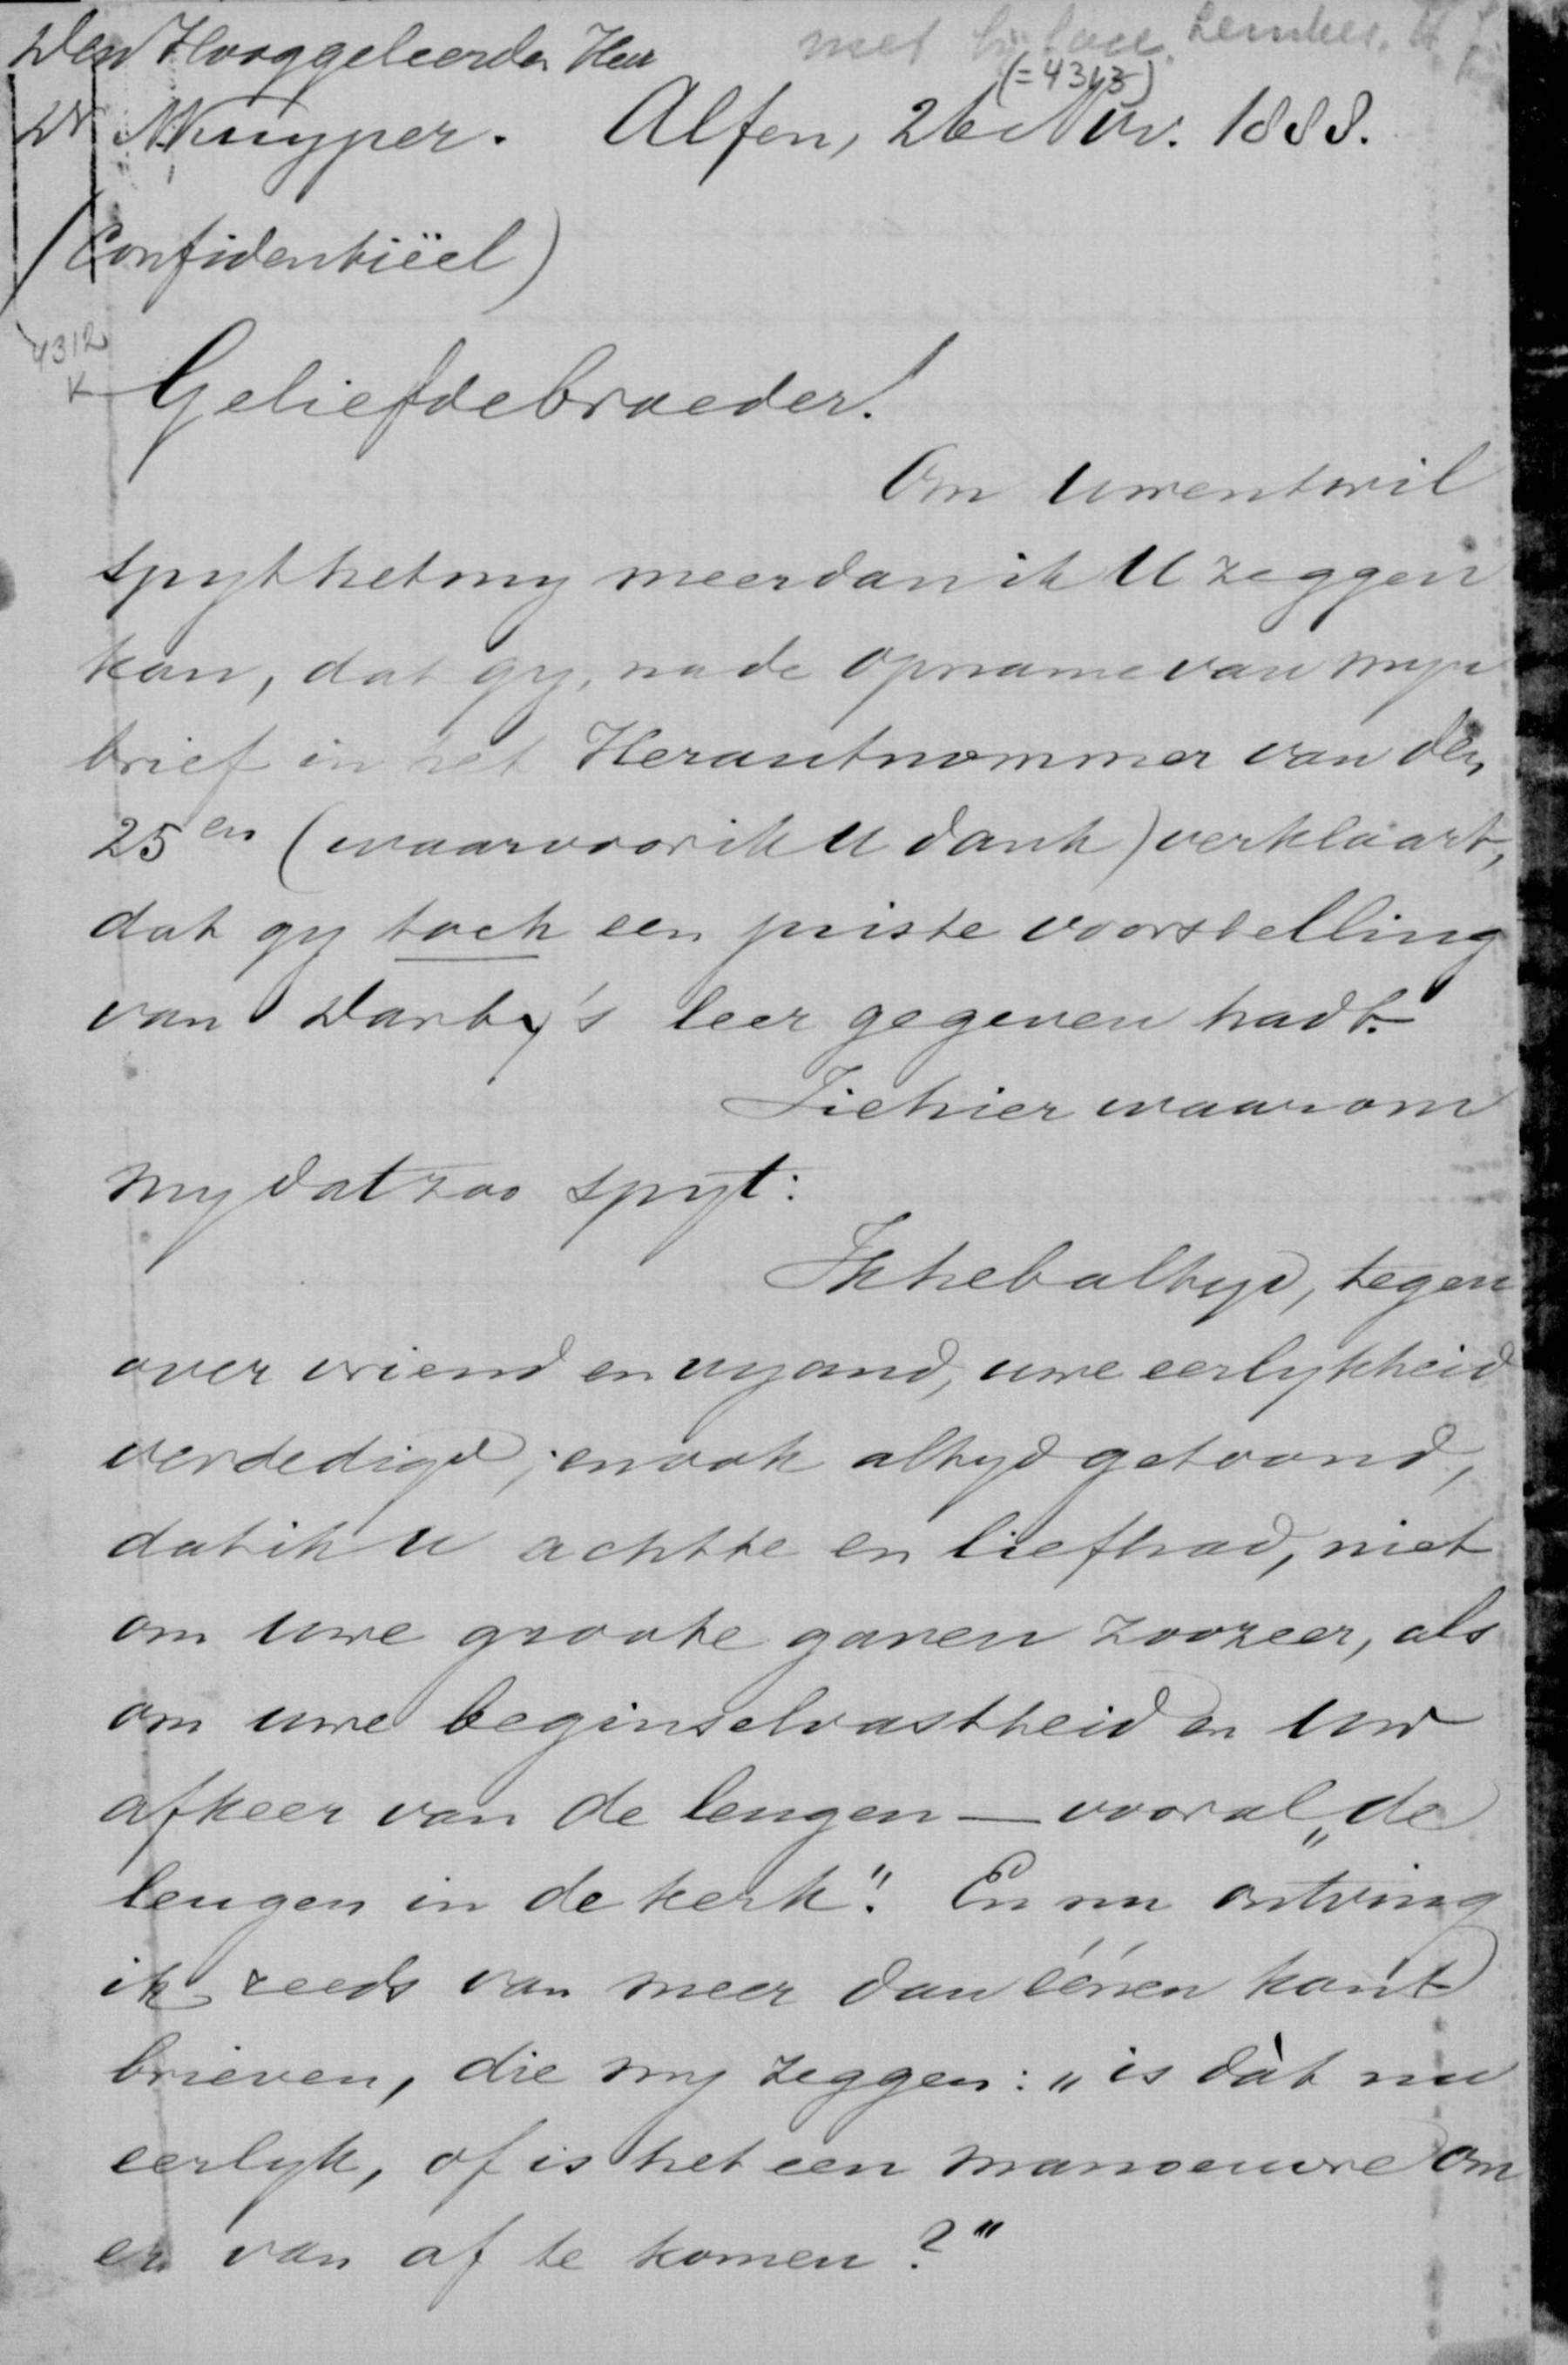 Den Hooggeleerden Heer
met
(=4313)
Dr A Kuyper. Alfen, 26 Nov. 1888.
(Confidentiëel)
4312
K
Geliefde broeder!
Om uwentwil
spyt het my meer dan ik U zeggen
kan, dat gy, na de opname van myn
brief in het Herautnommer van den
25en (waarvoor ik U dank) verklaart,
dat gy toch een juiste voorstelling
van Darby's leer gegeven hadt.
Ziehier waarom
my dat zoo spyt:
Ik heb altyd, tegen
over vriend en vyand, uwe eerlykheid
verdedigd; en ook altyd getoond,
dat ik U achtte en liefhad, niet
om uwe groote gaven zoozeer, als
om uwe beginselvastheid en uw
afkeer van de leugen — vooral „de
leugen in de kerk". En nu ontving
ik reeds van meer dan éénen kant
brieven, die my zeggen: „is dàt nu
eerlyk, of is het een manoeuvre om
er van af te komen?"